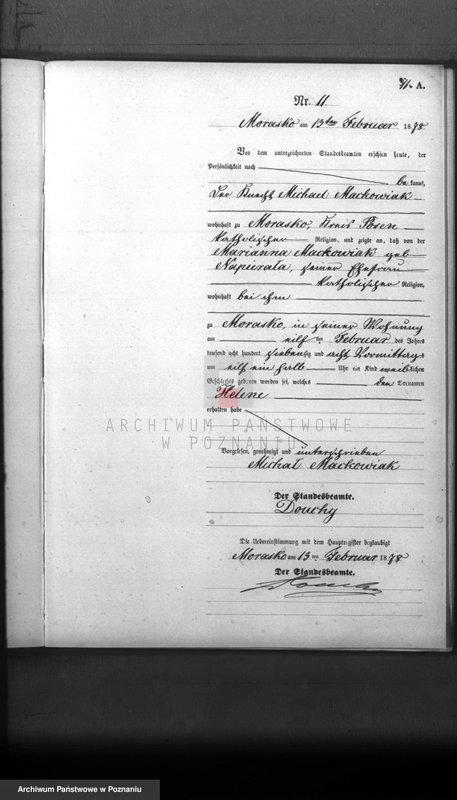 A.
Nr. 11.
Morasko am 13ten Februar 1878
Vor dem unterzeichneten Standesbeamten erschien heute, der
Persönlichkeit nach
be kannt,
Der Knecht Michael Mackowiak
wohnhaft zu Morasko, Kreis Posen
katholischer Religion, und zeigte an, daß von der
Marianna Mackowiak geb
Napierala, seiner Ehefrau
katholischer Religion,
wohnhaft bei ihm
zu Morasko, in seiner Wohnung
am eilf ten Februar des Jahres
tausend acht hundert siebenzig und acht Vormittags
um eilf ein halb Uhr ein Kind weiblichen
Geschlechts geboren worden sei, welches den Vornamen
Helene
erhalten habe
ARCHIWUM PAŃSTWOWE
W POZNANIU
Vorgelesen, genehmigt und unterschrieben
Michał Mackowiak
Der Standesbeamte.
Douchy
Die Uebereinstimmung mit dem Hauptregister beglaubigt
Morasko am 13 ten Februar 1878
Der Standesbeamte.
Archiwum Państwowe w Poznaniu